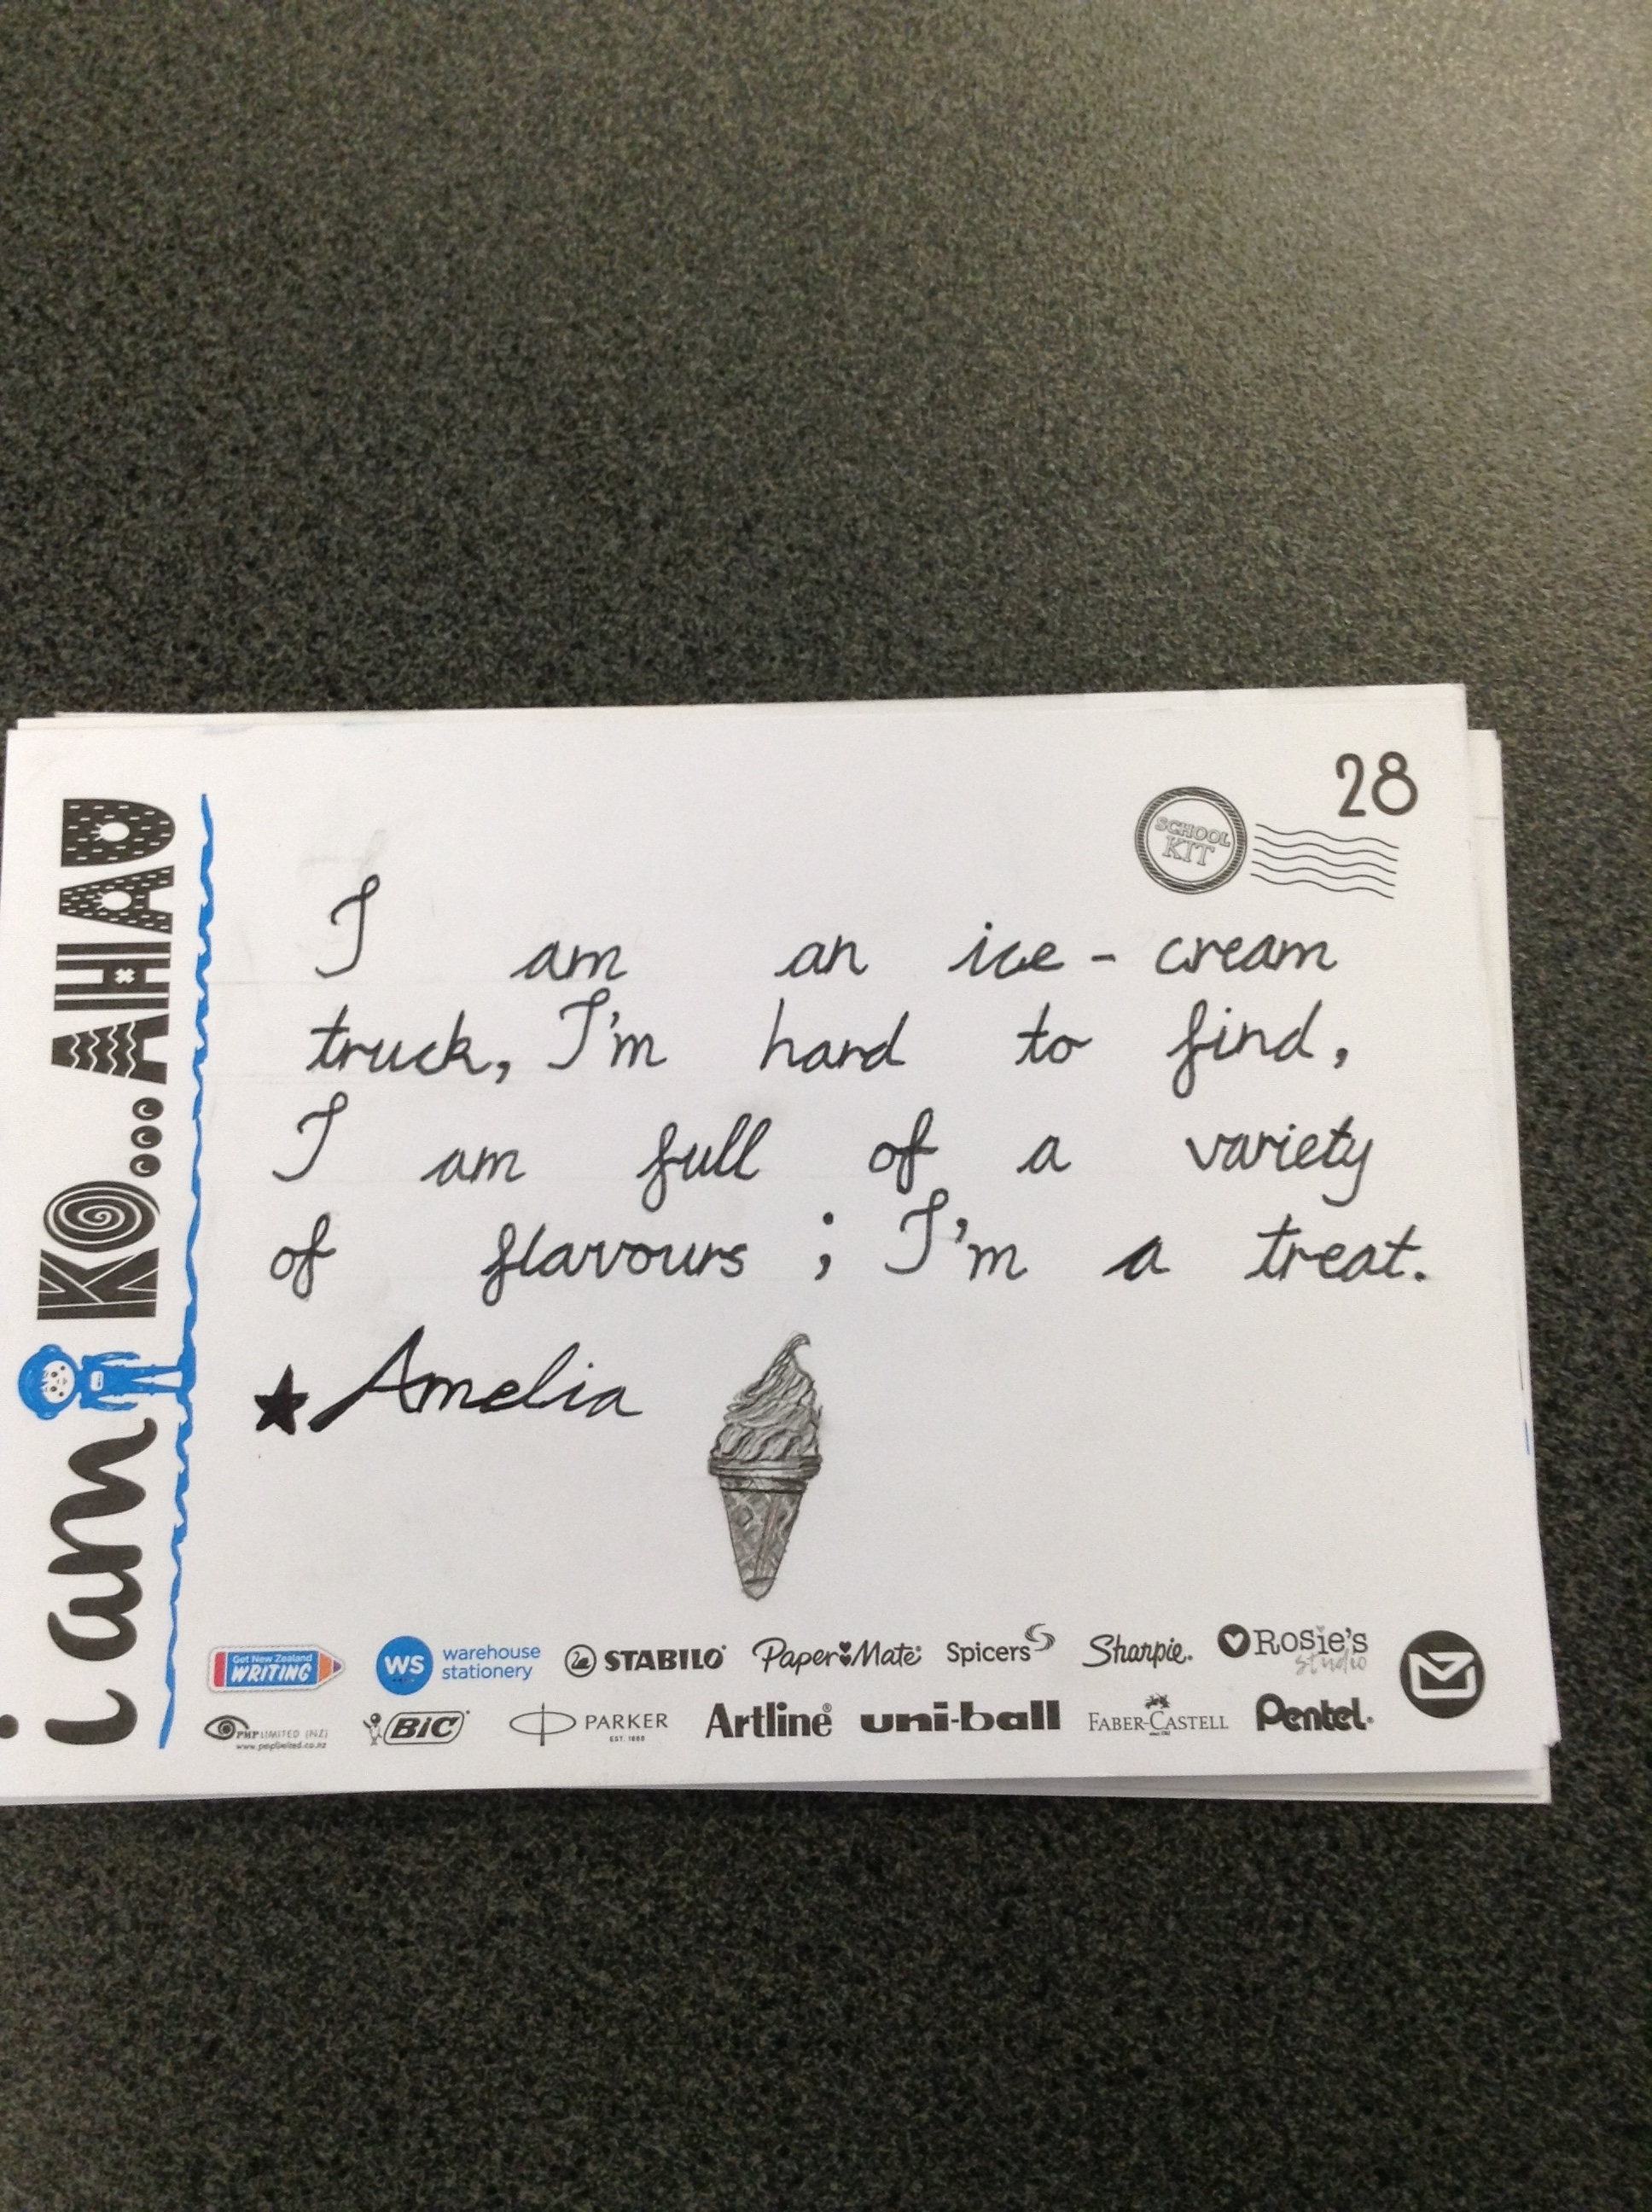 28
SCHOOL
KIT
i am KO...AHAU
I am an ice-cream
truck, I'm hard to find,
I am full of a variety
of flavours; I'm a treat.
★ Amelia
Get New Zealand
WRITING
WS warehouse
stationery
STABILO
Paper Mate
Spicers
Sharpie.
Rosie's
studio
PMP LIMITED (NZ)
www.pmplimited.co.nz
BIC
PARKER
EST. 1888
Artline
uni-ball
FABER-CASTELL
Pentel